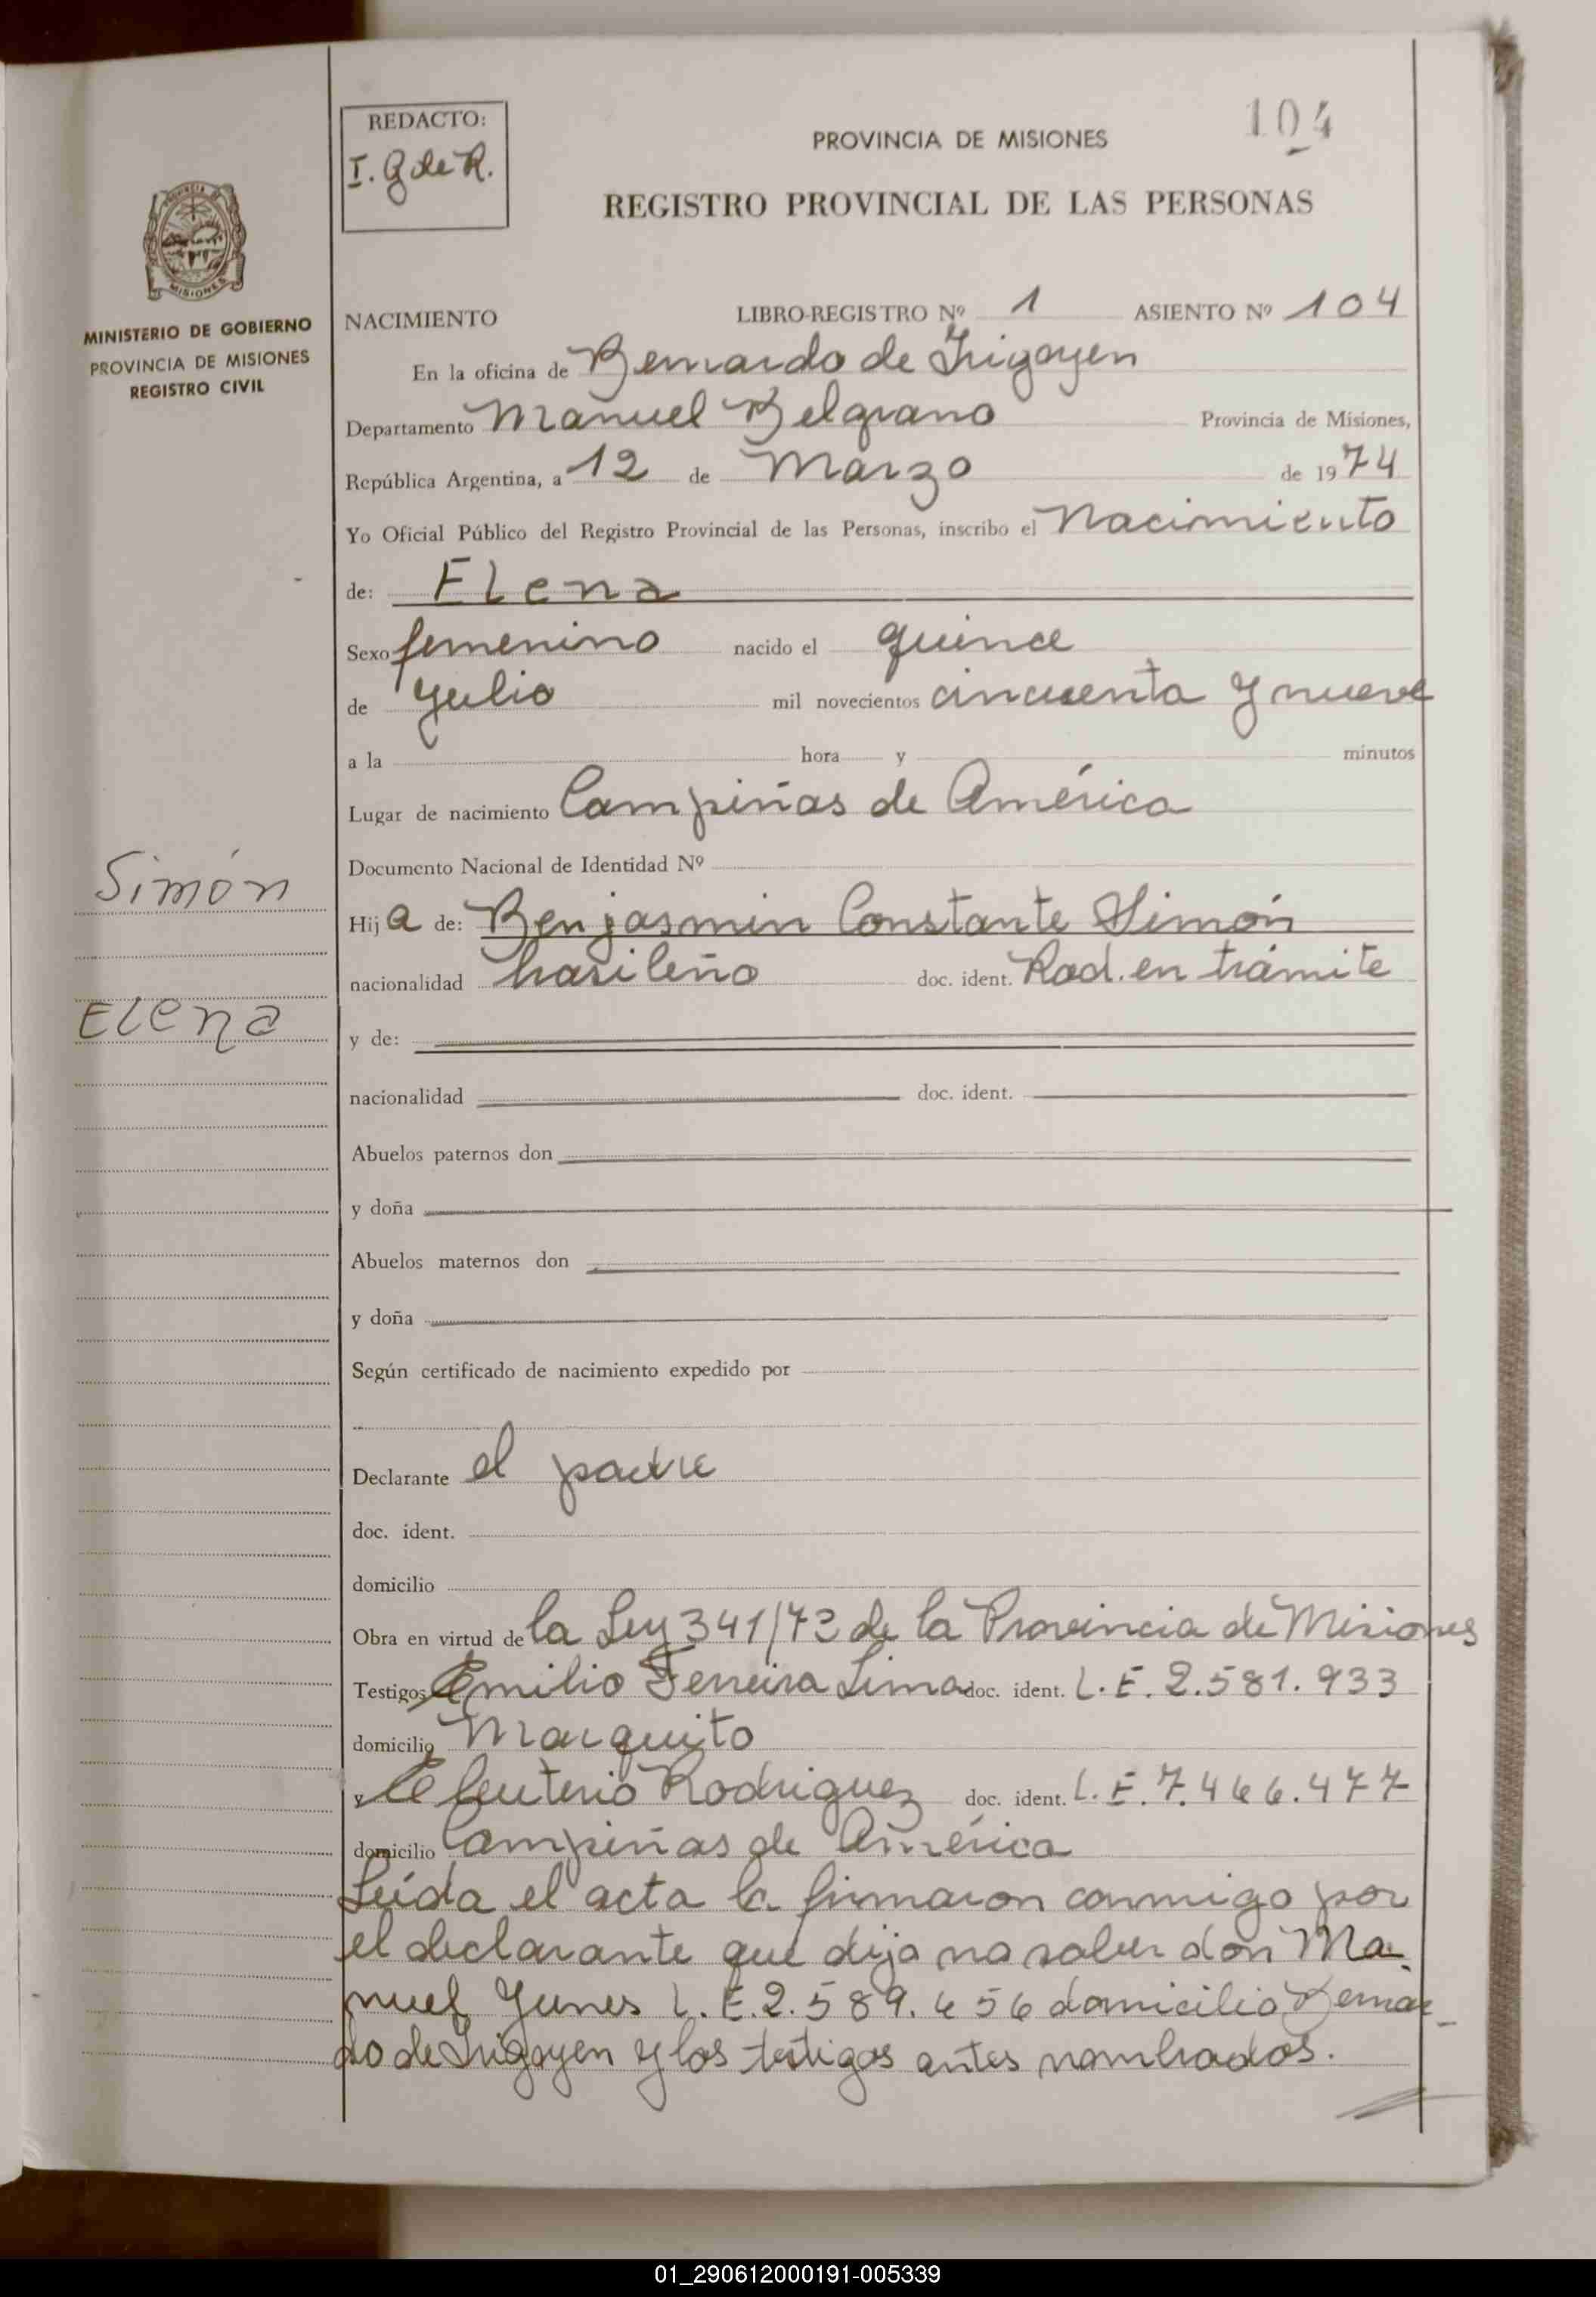 REDACTO:
I. G de R.
PROVINCIA DE MISIONES
104
REGISTRO PROVINCIAL DE LAS PERSONAS
MISIONES
MINISTERIO DE GOBIERNO
PROVINCIA DE MISIONES
REGISTRO CIVIL
NACIMIENTO LIBRO-REGISTRO Nº 1 ASIENTO Nº 104
En la oficina de Bernardo de Irigoyen
Departamento Manuel Belgrano Provincia de Misiones,
República Argentina, a 12 de Marzo de 1974
Yo Oficial Público del Registro Provincial de las Personas, inscribo el Nacimiento
de: Elena
Sexo femenino nacido el quince
de Julio mil novecientos cincuenta y nueve
a la hora y minutos
Lugar de nacimiento Campiñas de América
Documento Nacional de Identidad Nº
Simón
Hija de: Benjasmin Constante Simón
nacionalidad brasileño doc. ident. Rad. en trámite
Elena
y de:
nacionalidad doc. ident.
Abuelos paternos don
y doña
Abuelos maternos don
y doña
Según certificado de nacimiento expedido por
Declarante el padre
doc. ident.
domicilio
Obra en virtud de la Ley 341/73 de la Provincia de Misiones
Testigos Emilio Ferreira Lima doc. ident. L.E. 2.581.933
domicilio Marquito
y Eleuterio Rodriguez doc. ident. L.E. 7.466.477
domicilio Campiñas de América
Leída el acta la firmaron conmigo por
el declarante que dijo no saber don Ma-
nuel Yunes L.E. 2.589.656 domicilio Bernar-
do de Irigoyen y los testigos antes nombrados.
01_290612000191-005339